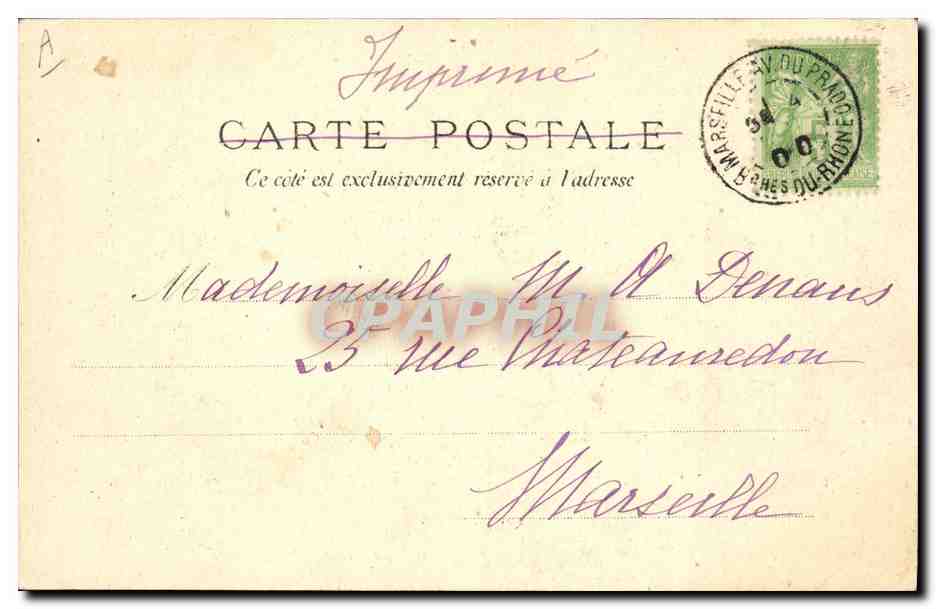 A
Imprimé
CARTE POSTALE
Ce côté est exclusivement réservé à l'adresse
MARSEILLE AV. DU PRADO
BCHES DU-RHONE
00
Mademoiselle M. A Denans
25 rue Chateauredon
Marseille
CPAPHIL